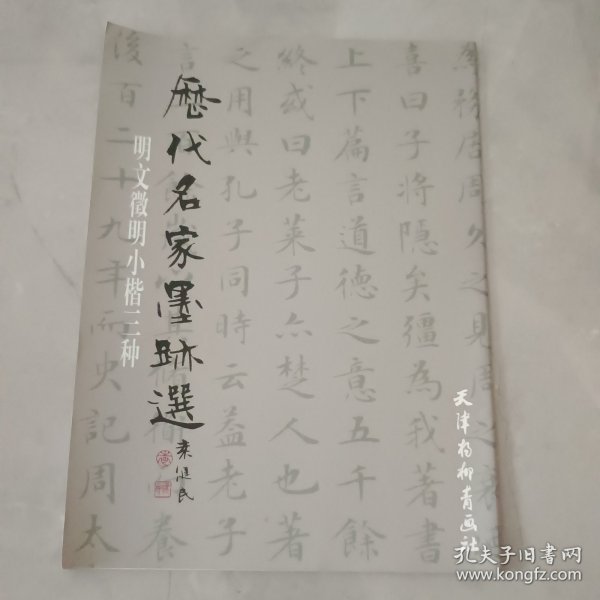 歷代名家墨跡選
明文徵明小楷三种
健民
天津杨柳青画社
為務居周久之見周之衰
喜曰子將隱矣彊為我著書
上下篇言道德之意五千餘
終或曰老萊子亦楚人也著
之用與孔子同時云蓋老子
言
養
後百二十九年而史記周太
孔夫子旧书网
www.kongfz.com